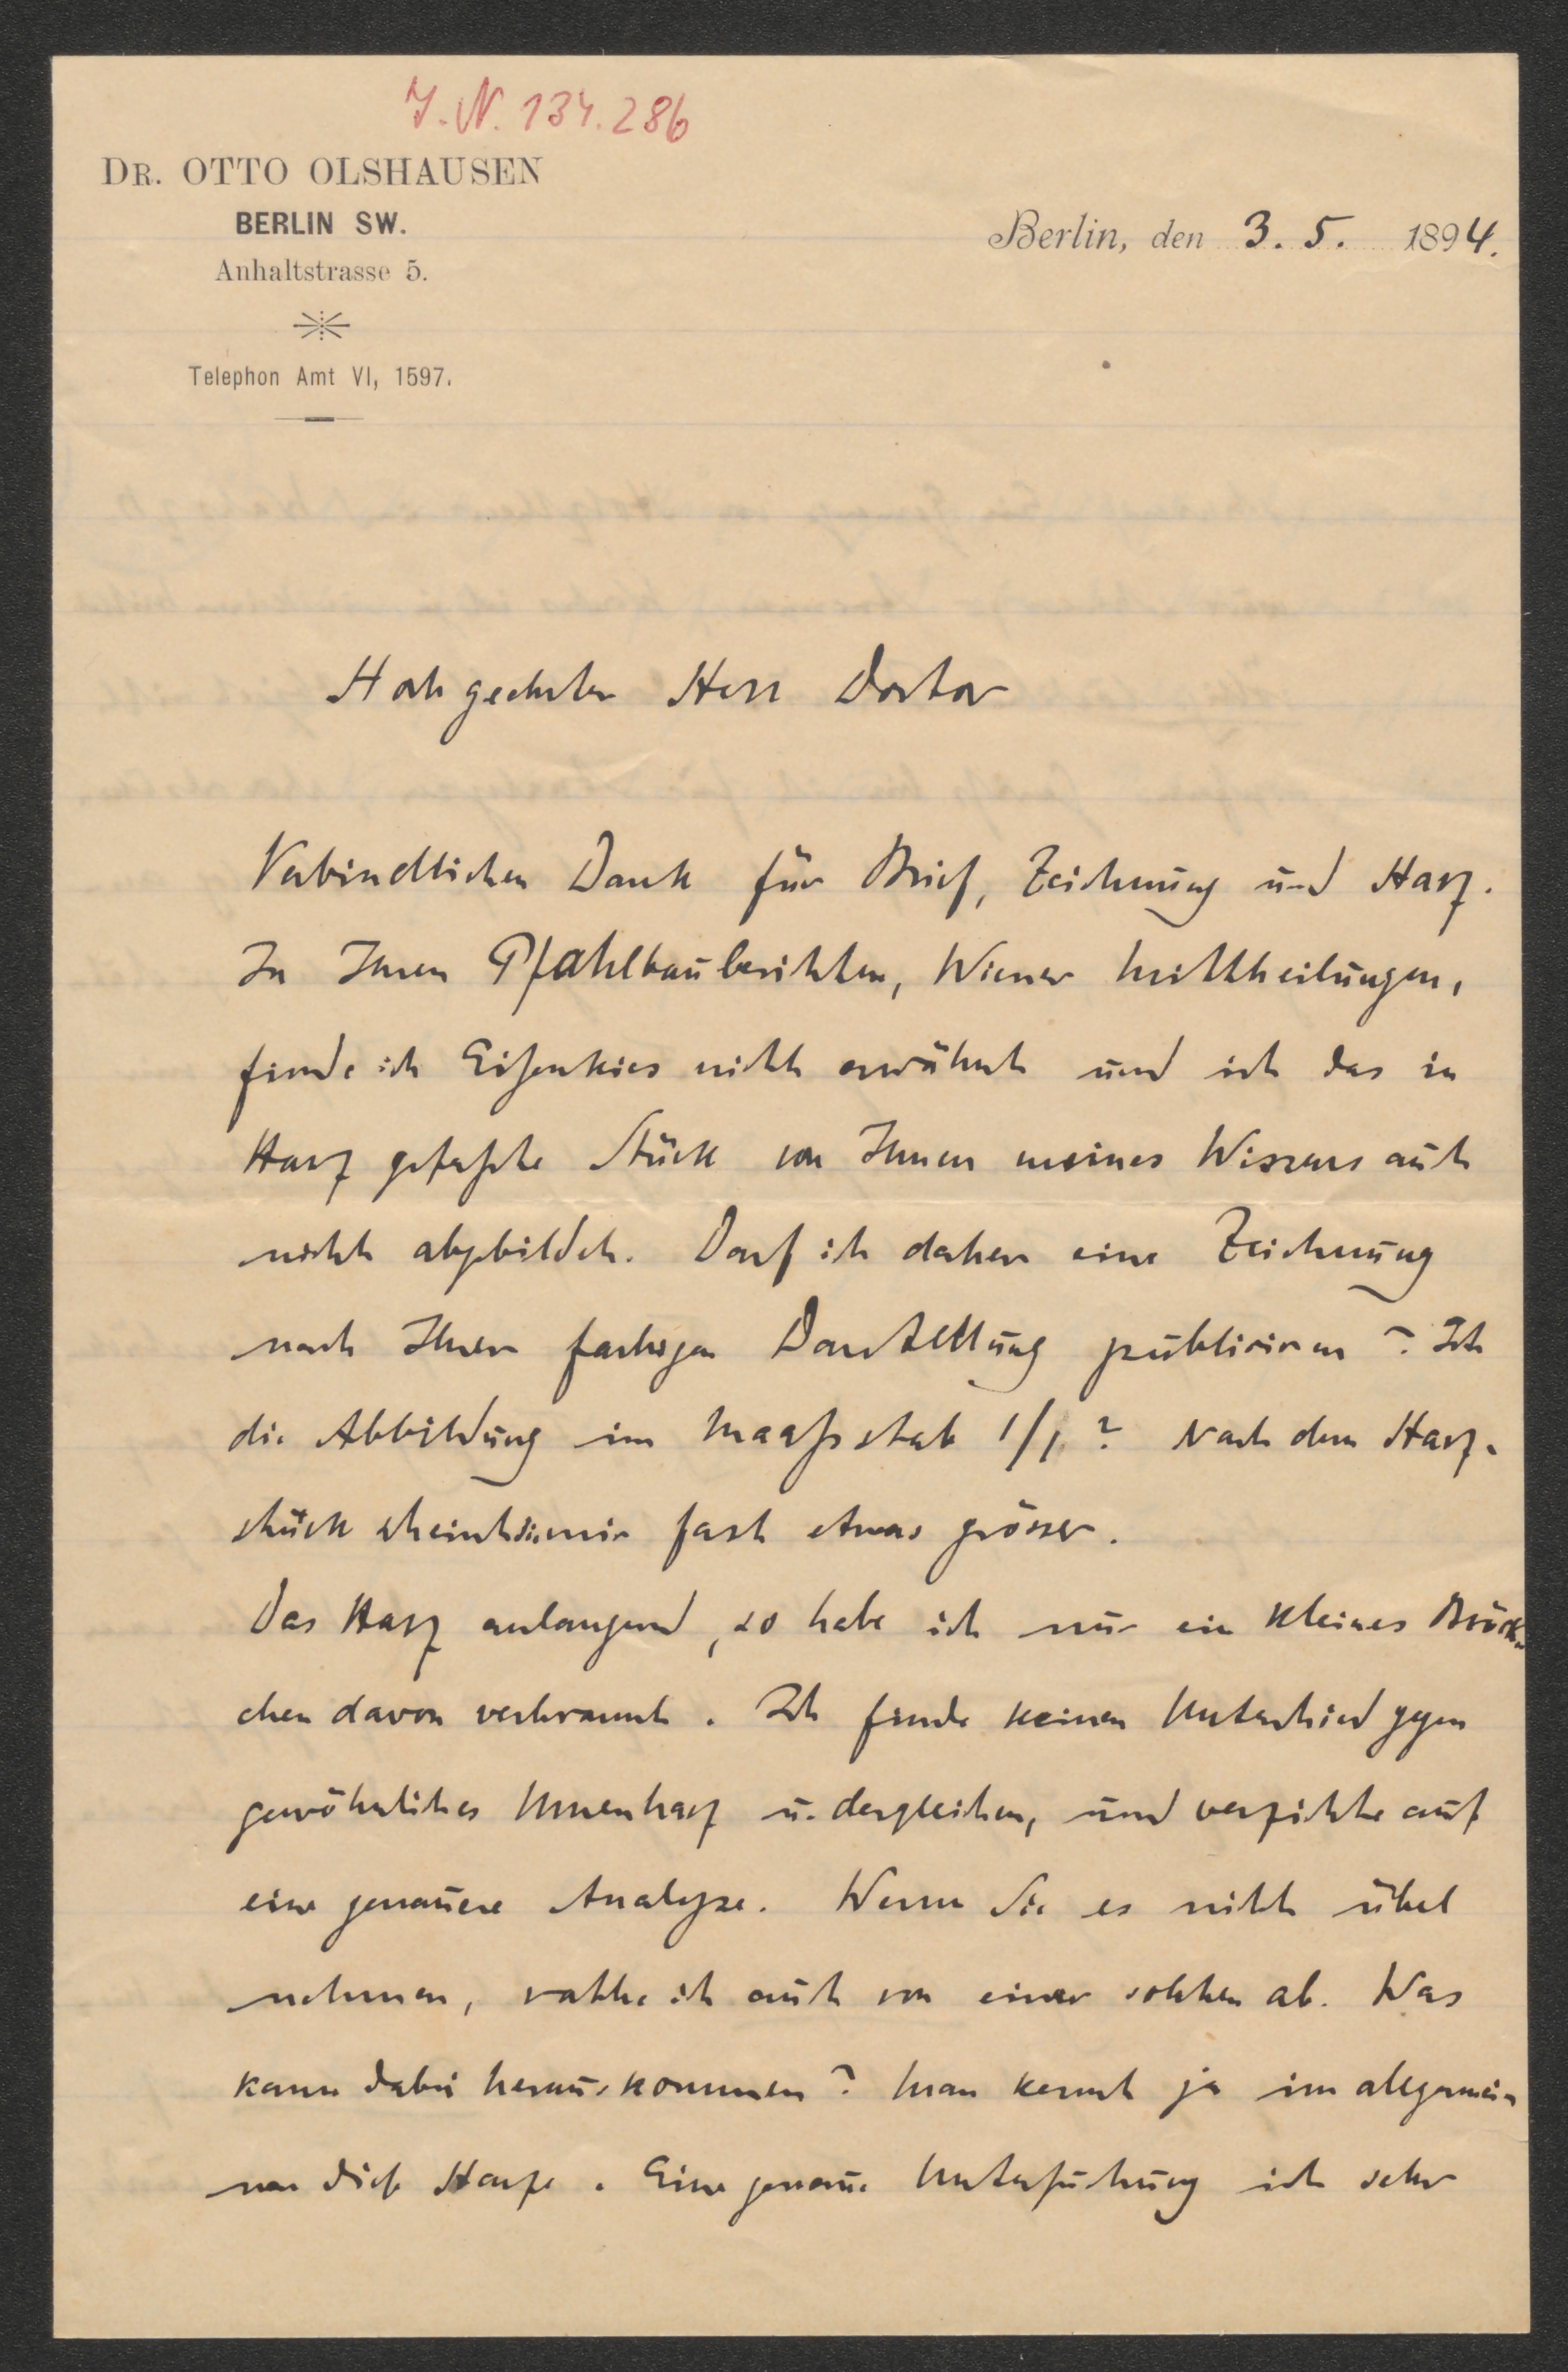 I.N. 134.286
DR. OTTO OLSHAUSEN
BERLIN SW.
Anhaltstrasse 5.
Telephon Amt VI, 1597.
Berlin, den 3. 5. 1894.
Hochgeehrter Herr Doctor
Verbindlichen Dank für Brief, Zeichnung und Harz.
In Ihren Pfahlbauberichten, Wiener Mittheilungen,
finde ich Eisenkies nicht erwähnt und ist das in
Harz gefasste Stück von Ihnen meines Wissens auch
nicht abgebildet. Darf ich daher eine Zeichnung
nach Ihrer farbigen Darstellung publiciren? Ist
die Abbildung im Maassstab 1/1? Nach dem Harz-
stück scheint sie mir fast etwas grösser.
Das Harz anlangend, so habe ich nur ein kleines Bröck-
chen davon verbrannt. Ich finde keinen Unterschied gegen
gewöhnliches Urnenharz u. dergleichen, und verzichte auf
eine genauere Analyse. Wenn Sie es nicht übel
nehmen, rathe ich auch von einer solchen ab. Was
kann dabei herauskommen? Man kennt ja im allgemei-
nen diese Harze. Eine genaue Untersuchung ist sehr